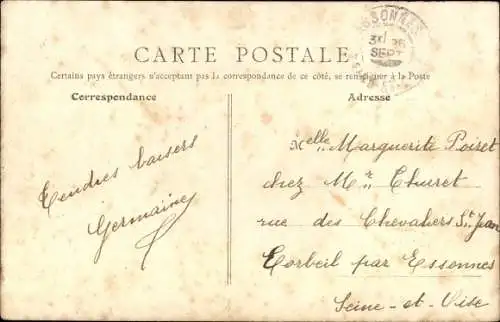 CARTE POSTALE
Certains pays étrangers n'acceptant pas la correspondance de ce côté, se renseigner à la Poste
Correspondance
Adresse
Tendres baisers
Germaine
Melle Marguerite Poiret
chez Mr Churet
rue des Chevaliers St Jean
Corbeil par Essonnes
Seine-et-Oise
ESSONNES
SEPT